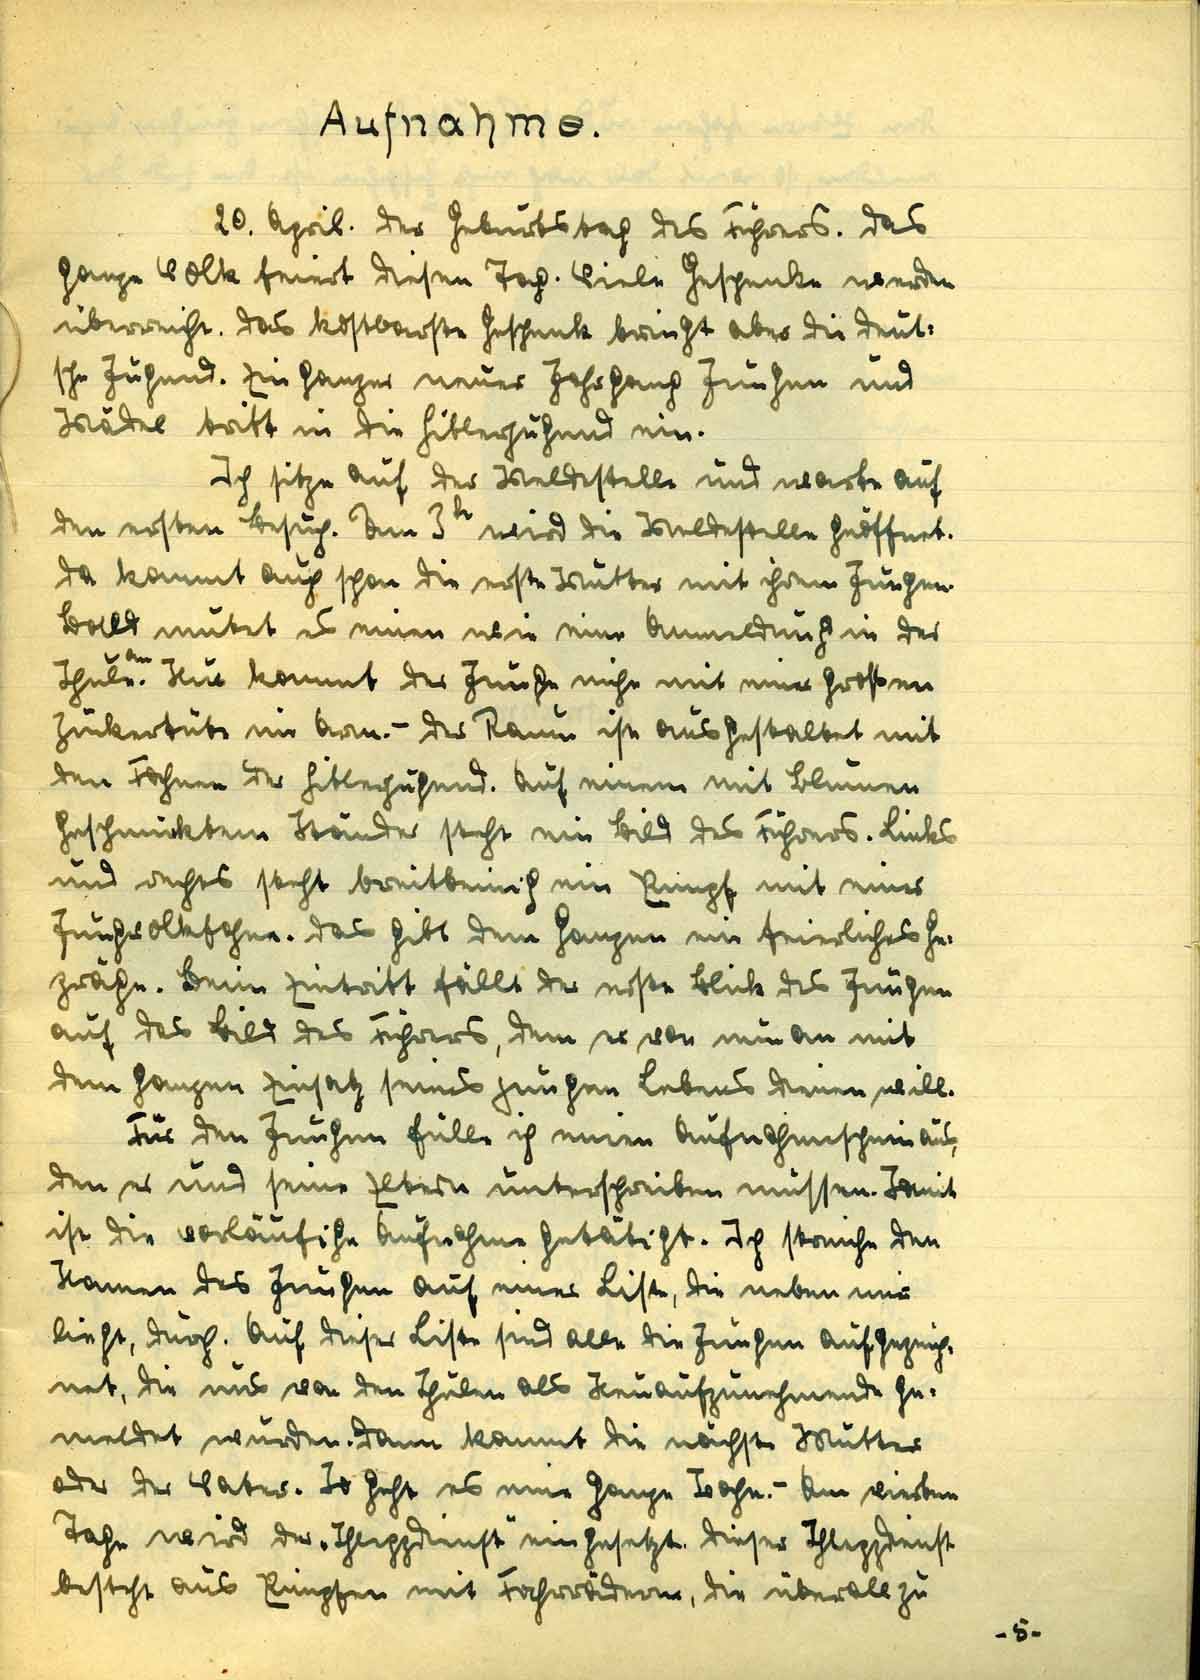 Aufnahme.
20. April. Der Geburtstag des Führers. Das
ganze Volk feiert diesen Tag. Viele Geschenke werden
überreicht. Das kostbarste Geschenk bringt aber die deut-
sche Jugend. Ein ganzer neuer Jahrgang Jungen und
Mädel tritt in die Hitlerjugend ein.
Ich sitze auf der Meldestelle und warte auf
den ersten Besuch. Um 3h wird die Meldestelle geöffnet.
Da kommt auch schon die erste Mutter mit ihrem Jungen.
Bald mutet es einen wie eine Anmeldung in der
Schule an. Nur kommt der Junge nicht mit einer großen
Zuckertüte im Arm.- Der Raum ist ausgestaltet mit
den Fahnen der Hitlerjugend. Auf einem mit Blumen
geschmückten Ständer steht ein Bild des Führers. Links
und rechts steht breitbeinig ein Pimpf mit einer
Jungvolkfahne. Das gibt dem Ganzen ein feierliches Ge-
präge. Beim Eintritt fällt der erste Blick des Jungen
auf das Bild des Führers, dem er von nun an mit
dem ganzen Einsatz seines jungen Lebens dienen will.
Für den Jungen fülle ich einen Aufnahmeschein aus,
den er und seine Eltern unterschreiben müssen. Damit
ist die vorläufige Aufnahme getätigt. Ich streiche den
Namen des Jungen auf einer Liste, die neben mir
liegt, durch. Auf dieser Liste sind alle die Jungen aufgezeich-
net, die uns von den Schulen als Neuaufzunehmende ge-
meldet wurden. Dann kommt die nächste Mutter
oder der Vater. So geht es eine ganze Woche.- Am vierten
Tage wird der „Schleppdienst" eingesetzt. Dieser Schleppdienst
besteht aus Pimpfen mit Fahrrädern, die überall zu
-5-